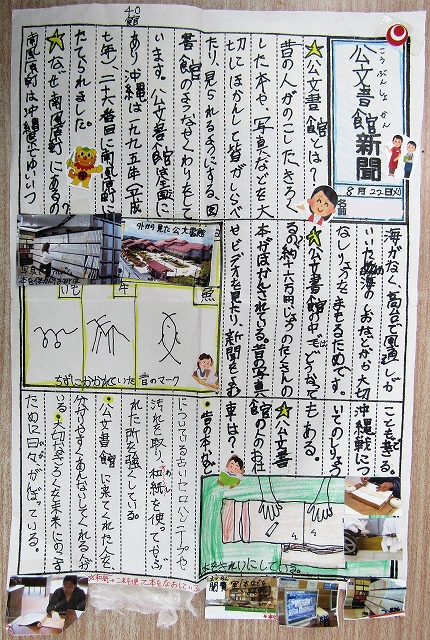 こうぶんしょかん
公文書館新聞
8月22日(火)
名前
★公文書館とは?
昔の人がのこした、きろく
した本や、写真などを大
切にほかんして皆がしらべ
たり、見られるようにする、図
書館のような
をして
います。公文書館は全国に
あり沖縄は一九九五年(平成
七年)、二十六番目に南風原町に
たてられました。
★なぜ南風原町にあるの?
南風原町は沖縄県でゆいいつ
海がなく、高台で風通しが
海の
などから大切
なしりょうをまもるためです。
★公文書館の中はどうなって
るの?
たくさんの
本がほかんされている。昔の写真
やビデオを見たり、新聞をよむ
こともできる。
沖縄戦につ
いてのしりょう
もある。
★公文書
館の
お仕
事は?
●昔の本など
についている古いセロハンテープや
汚れを取り、和紙を使ってやぶ
れた所を強くしている。
●公文書館に来てくれた人を
分かりやすくあんないしてくれる人が
いる。大切なきろくを未来にのこす
ために日々がんばっている。
外から見た公文書館
魚
牛
いも
ちずにかかれていた昔のマーク
本をきれいにしている。
閲覧室